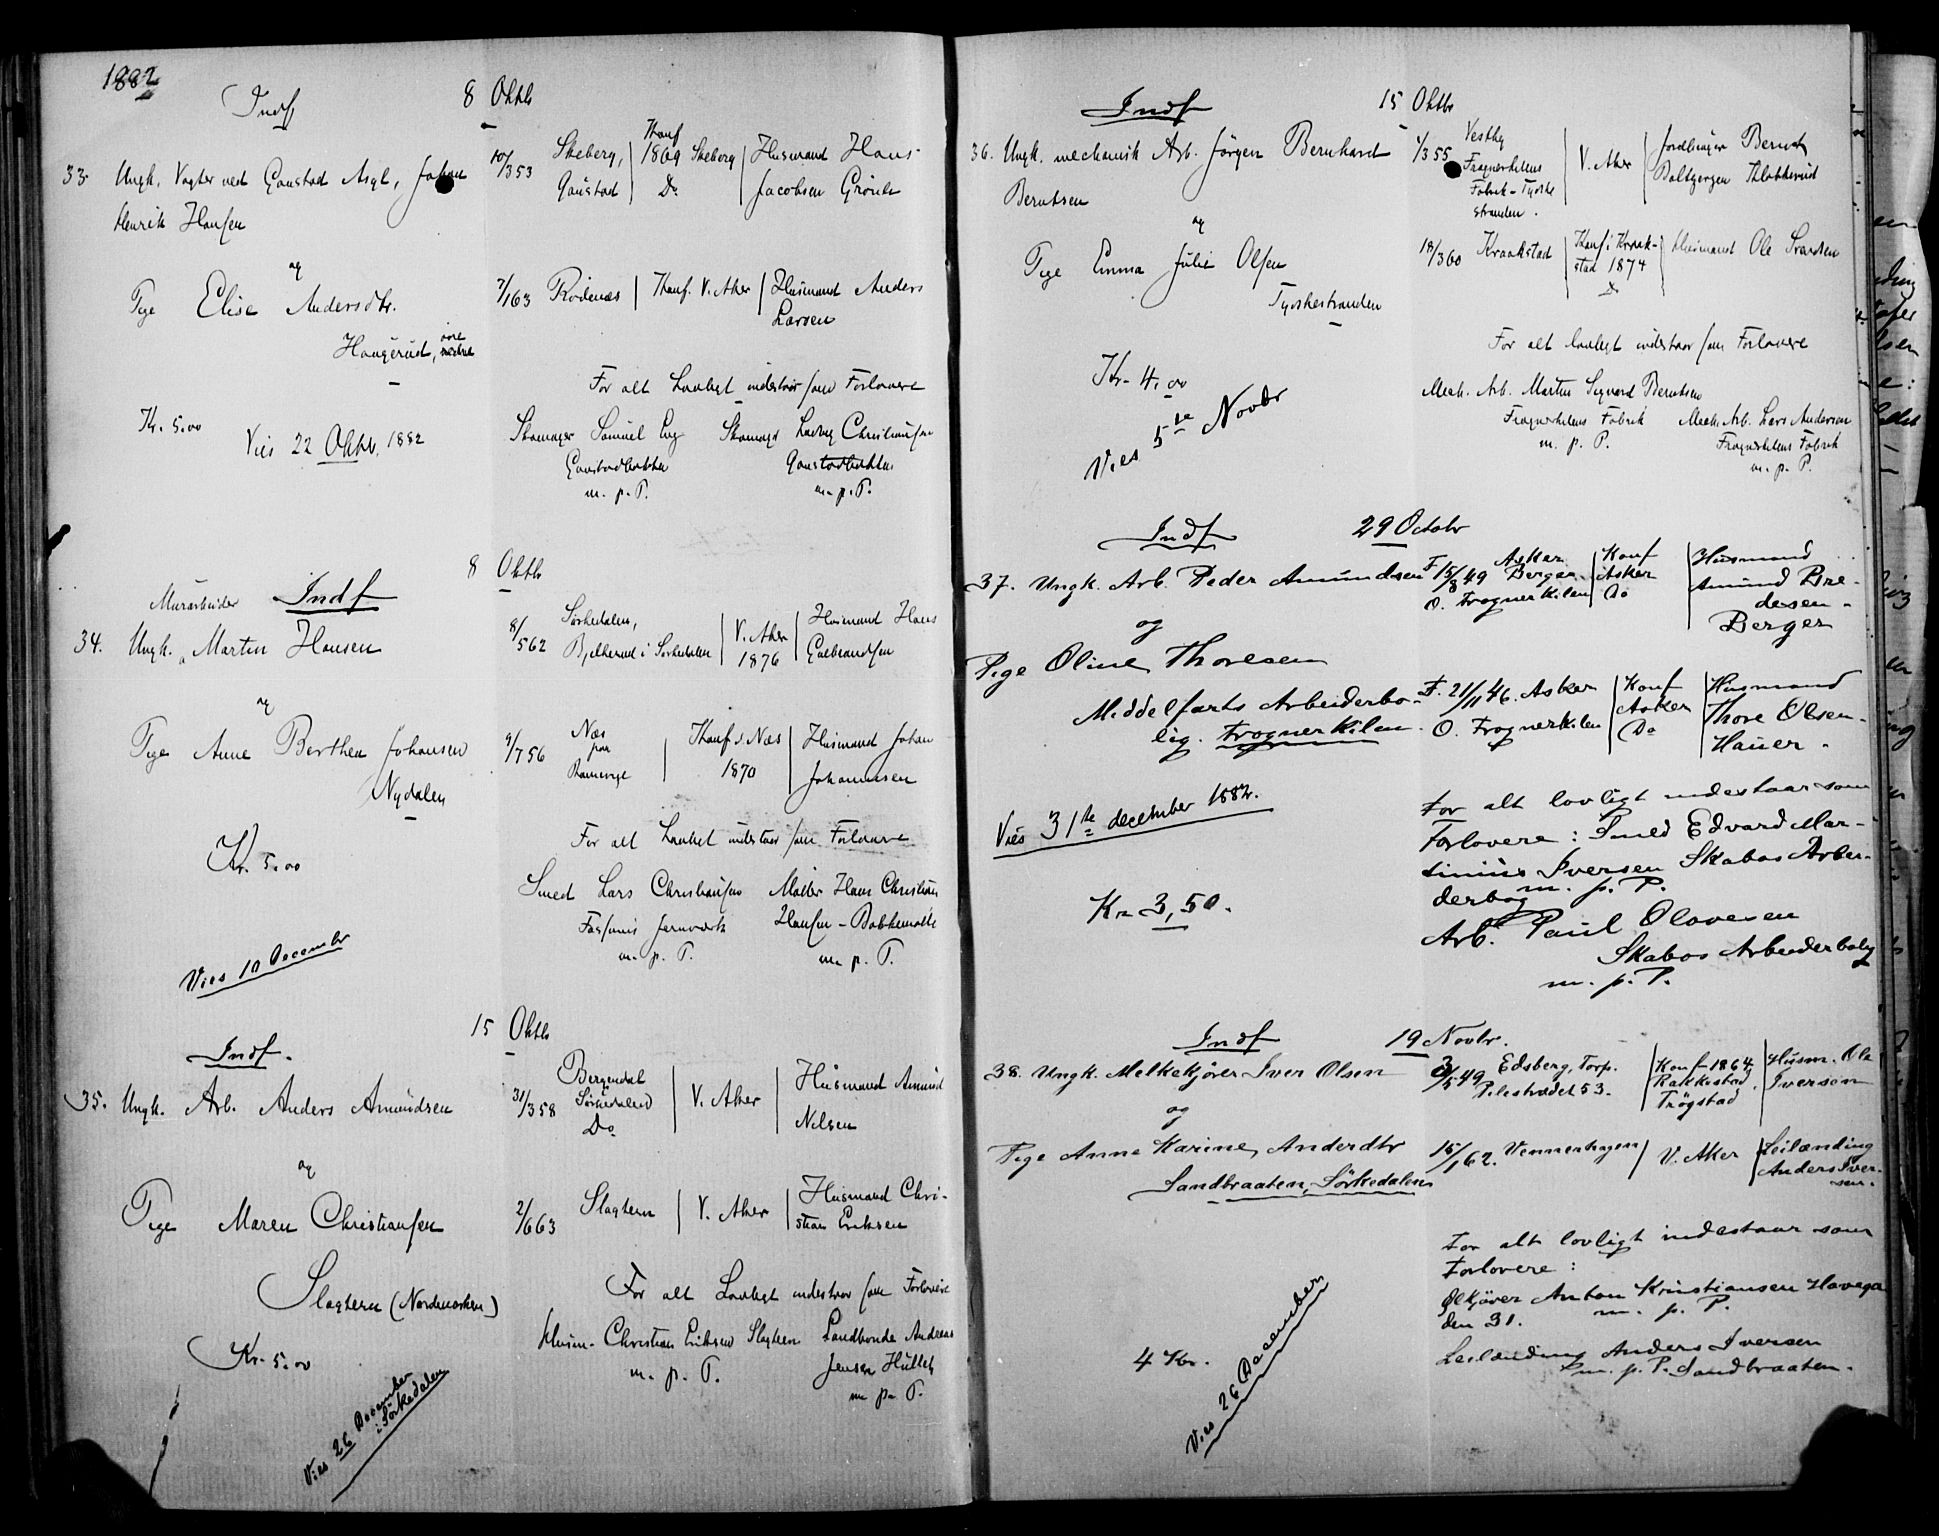 1882
Indf 8 Oktb
33. Ungk. Vogter ved Gaustad Asyl, Johan
Henrik Hansen
10/3 53 Skeberg, Gaustad
Konf 1869 Skeberg Do
Husmand Hans Jacobsen Grönli
og
Pige Elise Andersdtr.
Haugerud, övre
7/1 63 Rödenæs Konf. V. Aker Husmand Anders
Larsen
For alt Lovligt indestaar som Forlovere
Kr. 5.00
Vies 22 Oktbr. 1882
Skomager Samuel Skomager Ludvig Christiansen
Gaustadbakken Gaustadbakken
m. p. P. m. p. P.
8 Oktb
Murarbeider Indf
34. Ungk. Martin Hansen
8/5 62 Sörkedalen,
i Sörkedalen
V. Aker 1876
Husmand Hans Gulbrandsen
og
Pige Anne Berthea Johansen
Nydalen
9/7 56 Næs paa Romerige
Konf. i Næs 1870
Husmand Johan Johannesen
Kr. 5.00
For alt Lovligt indestaar som Forlovere
Smed Lars Christiansen Maler Hans Christian
Jernværk Hansen - Bakkemölle
m. p. P. m. p. P.
Vies 10 Decembr
15 Oktb
Indf.
35. Ungk. Arb. Anders Amundsen
31/3 58 Bergendal Sörkedalen Do
V. Aker
Husmand Amund Nilsen
og
Pige Maren Christiansen
Slagtern (Nordmarken)
2/6 63 Slagtern V. Aker Husmand Chri-
stian Eriksen
For alt Lovligt indestaar som Forlovere
Kr. 5.00
Husm. Christian Eriksen Slagtern Landhandl Andreas
m. p. P. Jensen
m. p. P.
Vies 26 December
i Sörkedalen
Indf 15 Oktbr
36. Ungk. mechanisk Arb. Jörgen Bernhard
Berntsen
1/3 55 Vestby
Frognerkilens
Fabrik - Tyske
stranden.
V. Aker
Jordbruger Bernt
og
Pige Emma Julie Olsen
Tyskestranden
18/3 60 Kraakstad Konf. i Kraak-
stad 1874
Do
Husmand Ole Svendsen
For alt lovligt indestaar som Forlovere
Kr. 4.00
Vies 5te Novbr
Mech. Arb. Martin Sigvard Berntsen
Frognerkilens Fabrik Mech. Arb. Lars Andersen
m. p. P. Frognerkilens Fabrik
m. p. P.
Indf 29 Octobr
37. Ungk. Arb. Peder Amundsen
F 15/8 49 Asker Berger
O. Frognerkilen
Konf Asker Do
Husmand
Amund Bre-
desen -
Berger
og
Pige Oline Thoresen
Middelfarts Arbeiderbo-
lig. Frognerkilen.
F. 21/11 46. Asker
O. Frognerkilen
Konf Asker Do
Husmand
Thore Olsen -
Hauer.
Vies 31te december 1882.
Kr 3,50.
For alt lovligt indestaar som
Forlovere: Smed Edvard Mar-
tinius Iversen Skabos Arbei-
derbog
m. p. P.
Arb. Paul Olavesen
Skabos Arbeiderbolig
m. p. P.
Indf 19 Novbr.
38. Ungk. Melkekjörer Iver Olsen
3/5 49 Edsberg, Torp.
Pilestrædet 53.
Konf 1864 Rakkestad, Trögstad
Husm. Ole Iversen
og
Pige Anne Karine Andersdtr
Sandbraaten, Sörkedalen
15/1 62. Vennerhagen V. Aker Leilænding
Anders Iver-
sen.
For alt lovligt indestaar som
Forlovere:
Ölkjörer Anton Kristiansen Havnega
den 31. m. p. P.
Leilænding Anders Iversen
m. p. P. Sandbraaten.
4 Kr.
Vies 26 December